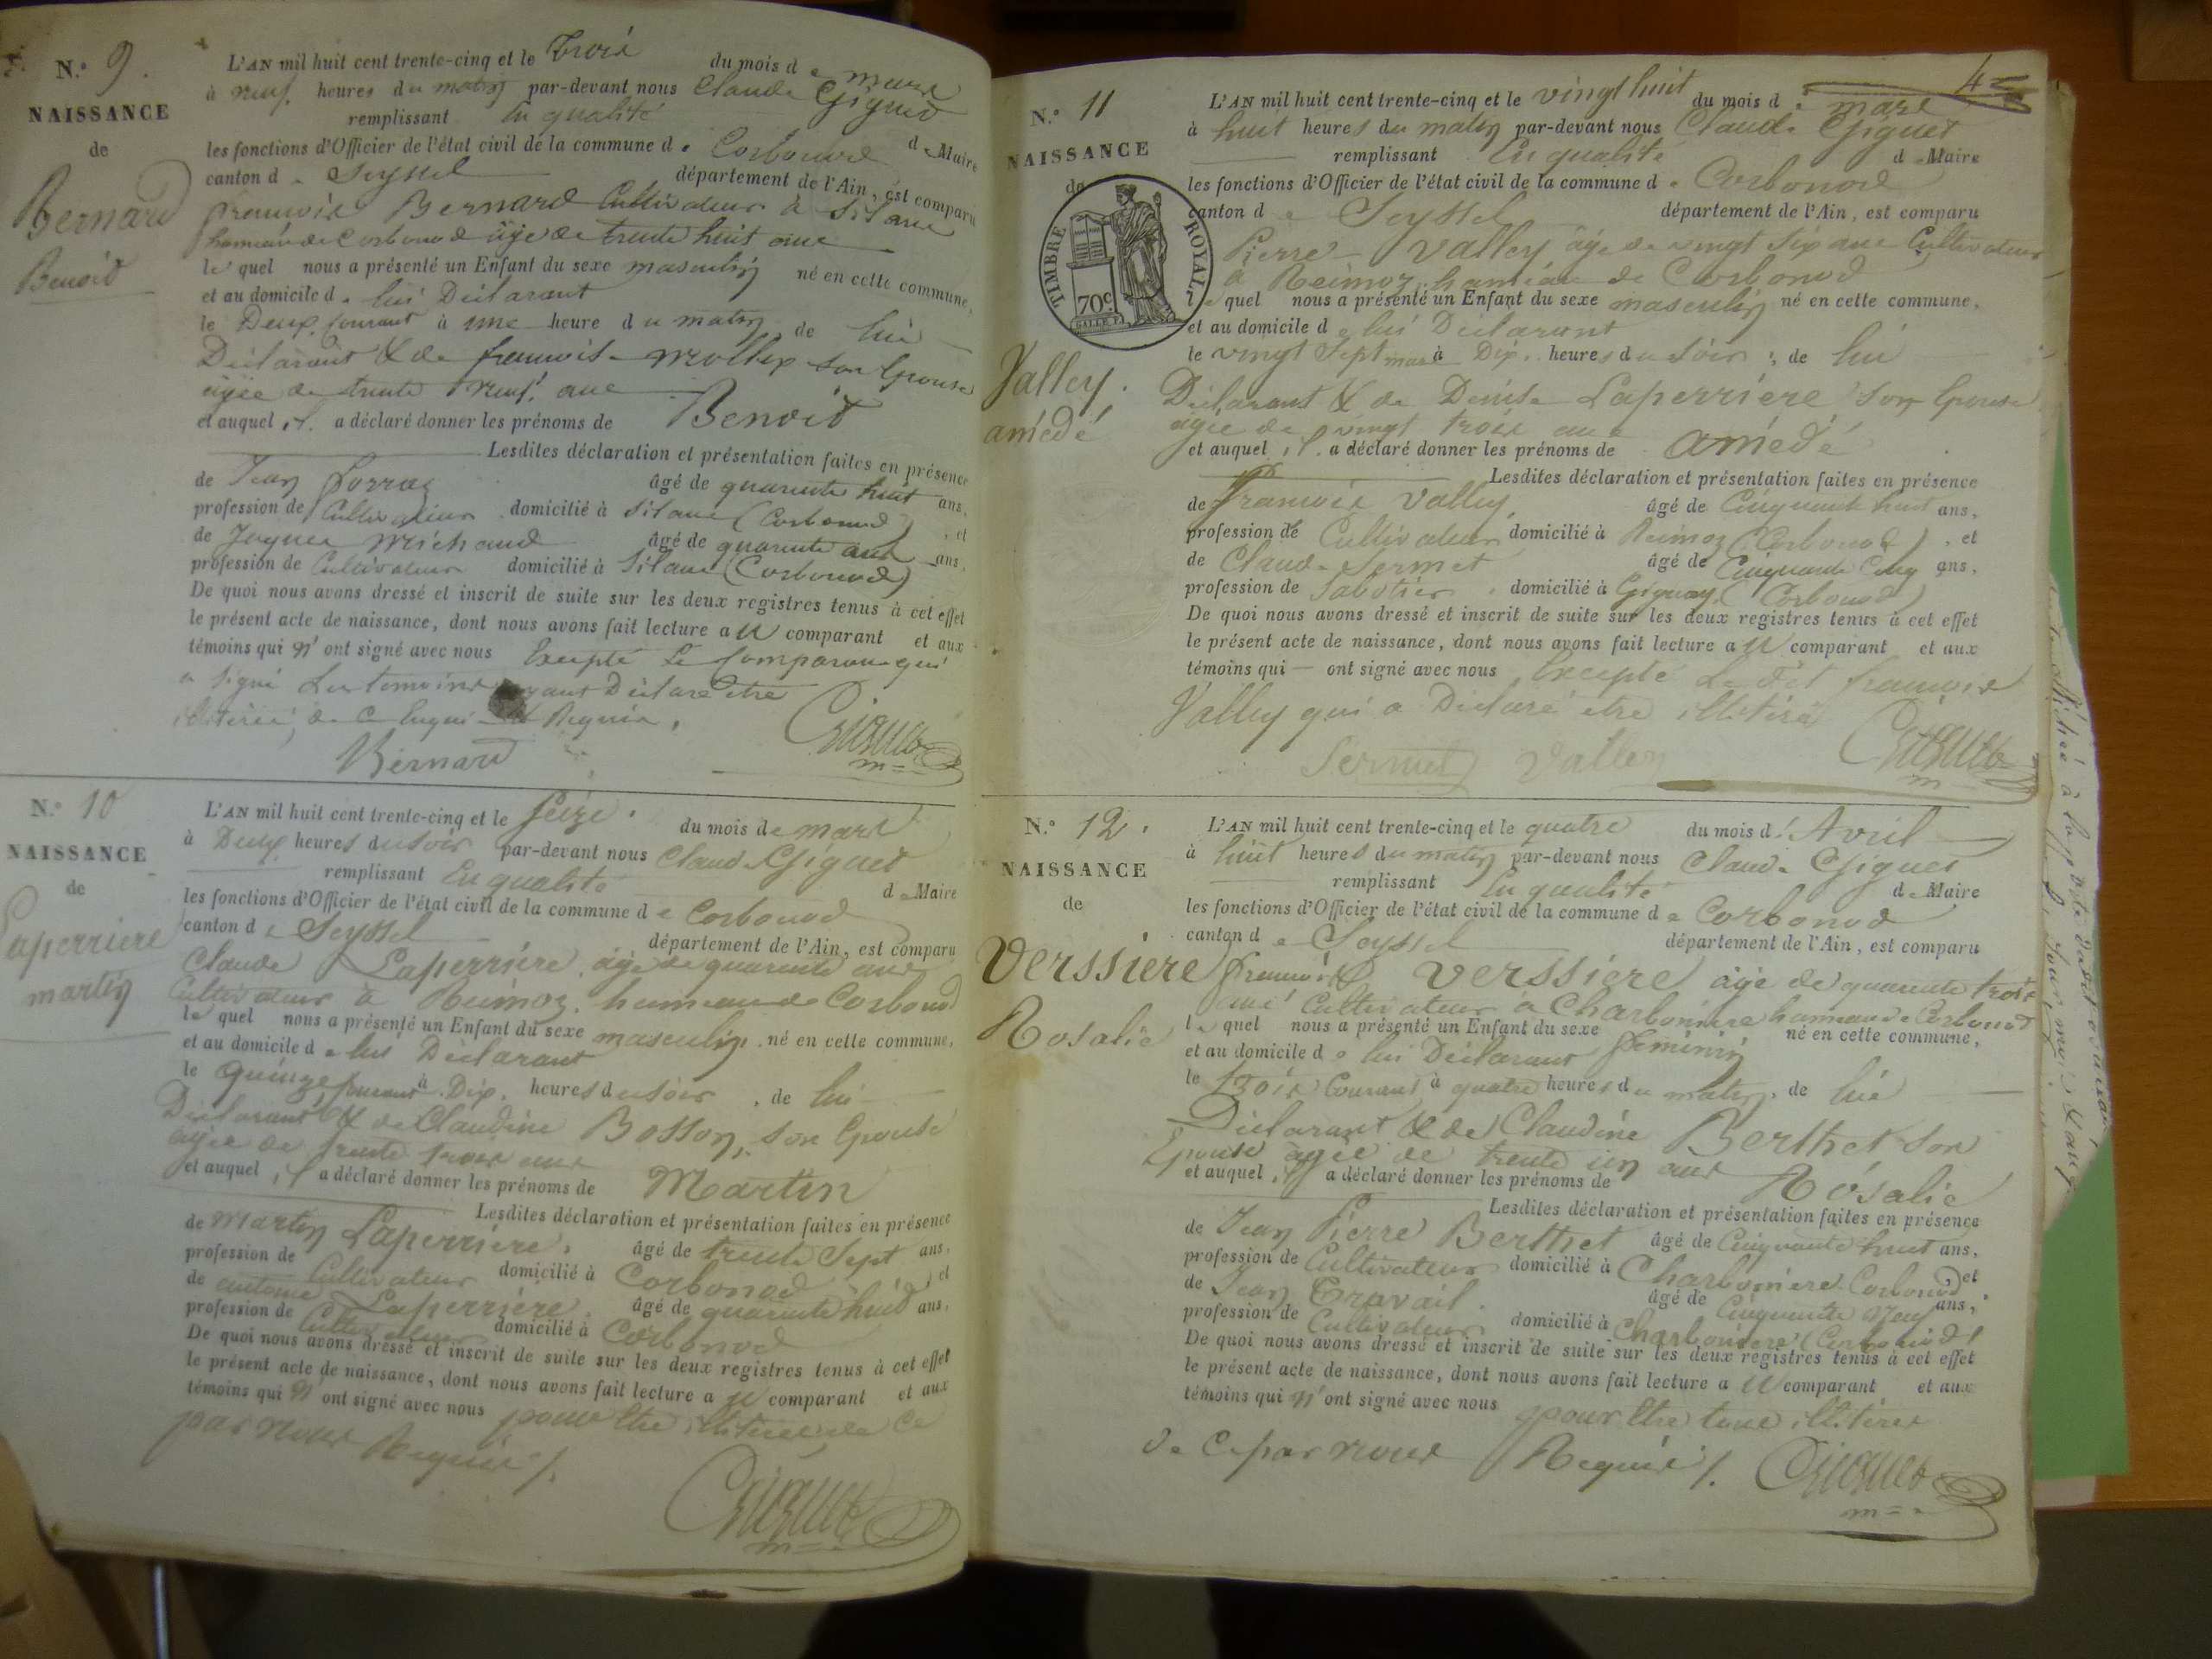 N.º 9.
NAISSANCE
de
Bernard
Benoit
L'AN mil huit cent trente-cinq et le trois du mois de mars
à neuf heures du matin par-devant nous Claude Giguet
remplissant En qualité de Maire
les fonctions d'Officier de l'état civil de la commune de Corbonod
canton de Seyssel département de l'Ain, est comparu
francois Bernard Cultivateur à Silans
hameau de Corbonod âgé de trente huit ans
lequel nous a présenté un Enfant du sexe masculin né en cette commune,
et au domicile de lui Déclarant
le Deux courant à une heure du matin de lui
Déclarant & de francoise mollex son Epouse
agée de trente neuf ans
et auquel il a déclaré donner les prénoms de Benoit
Lesdites déclaration et présentation faites en présence
de Jean âgé de quarante huit ans,
profession de Cultivateur domicilié à Silans (Corbonod), et
de Jaques michaud âgé de quarante ans,
profession de Cultivateur domicilié à Silans (Corbonod)
De quoi nous avons dressé et inscrit de suite sur les deux registres tenus à cet effet
le présent acte de naissance, dont nous avons fait lecture au comparant et aux
témoins qui n'ont signé avec nous Excepté Le Comparant qui
a signé Les temoins ayant Déclaré etre
illitérés, de ce Requis.
Bernard Giguet
N.º 10
NAISSANCE
de
Laperriere
martin
L'AN mil huit cent trente-cinq et le seize du mois de mars
à Deux heures du soir par-devant nous Claude Giguet
remplissant En qualité de Maire
les fonctions d'Officier de l'état civil de la commune de Corbonod
canton de Seyssel département de l'Ain, est comparu
Claude Laperriere âgé de quarante ans
Cultivateur à Reimoz hameau de Corbonod
lequel nous a présenté un Enfant du sexe masculin né en cette commune,
et au domicile de lui Déclarant
le quinze courant à Dix heures du soir, de lui
Déclarant & de Claudine Bosson, son Epouse
agée de trente trois ans
et auquel il a déclaré donner les prénoms de Martin
Lesdites déclaration et présentation faites en présence
de martin Laperriere, âgé de trente Sept ans,
profession de Cultivateur domicilié à Corbonod, et
de antoine Laperriere, âgé de quarante huit ans,
profession de Cultivateur domicilié à Corbonod
De quoi nous avons dressé et inscrit de suite sur les deux registres tenus à cet effet
le présent acte de naissance, dont nous avons fait lecture au comparant et aux
témoins qui n'ont signé avec nous pour etre illiterés de ce
par nous Requis /.
Giguet
4
N.º 11
NAISSANCE
de
TIMBRE ROYAL
70c
Valley.
amédé
L'AN mil huit cent trente-cinq et le vingt huit du mois de mars
à huit heures du matin par-devant nous Claude Giguet
remplissant En qualité de Maire
les fonctions d'Officier de l'état civil de la commune de Corbonod
canton de Seyssel département de l'Ain, est comparu
Pierre Valley âgé de vingt six ans Cultivateur
à Reimoz hameau de Corbonod
lequel nous a présenté un Enfant du sexe masculin né en cette commune,
et au domicile de lui Déclarant
le vingt sept mars à Dix heures du soir, de lui
Déclarant & de Denise Laperriere son Epouse
agée de vingt trois ans
et auquel il a déclaré donner les prénoms de amédé
Lesdites déclaration et présentation faites en présence
de francois Valley, âgé de Cinquante huit ans,
profession de Cultivateur domicilié à Reimoz (Corbonod), et
de Claude Sermet âgé de Cinquante Cinq ans,
profession de Sabotier domicilié à Gignay (Corbonod)
De quoi nous avons dressé et inscrit de suite sur les deux registres tenus à cet effet
le présent acte de naissance, dont nous avons fait lecture au comparant et aux
témoins qui — ont signé avec nous Excepté Le dit francois
Valley qui a Déclaré etre illitéré
Sermet Valley Giguet
N.º 12.
NAISSANCE
de
Verssiere
Rosalie
L'AN mil huit cent trente-cinq et le quatre du mois d'Avril
à huit heures du matin par-devant nous Claude Giguet
remplissant En qualité de Maire
les fonctions d'Officier de l'état civil de la commune de Corbonod
canton de Seyssel département de l'Ain, est comparu
francois Verssiere âgé de quarante trois
ans Cultivateur à Charboniere hameau de Corbonod
lequel nous a présenté un Enfant du sexe féminin né en cette commune,
et au domicile de lui Déclarant
le trois Courant à quatre heures du matin, de lui
Déclarant & de Claudine Berthet son
Epouse agée de trente un ans
et auquel il a déclaré donner les prénoms de Rosalie
Lesdites déclaration et présentation faites en présence
de Jean Pierre Berthet âgé de Cinquante huit ans,
profession de Cultivateur domicilié à Charboniere Corbonod, et
de Jean Travail âgé de Cinquante neuf ans,
profession de Cultivateur domicilié à Charboniere (Corbonod)
De quoi nous avons dressé et inscrit de suite sur les deux registres tenus à cet effet
le présent acte de naissance, dont nous avons fait lecture au comparant et aux
témoins qui n'ont signé avec nous pour etre tous illitérés
de ce par nous Requis /. Giguet